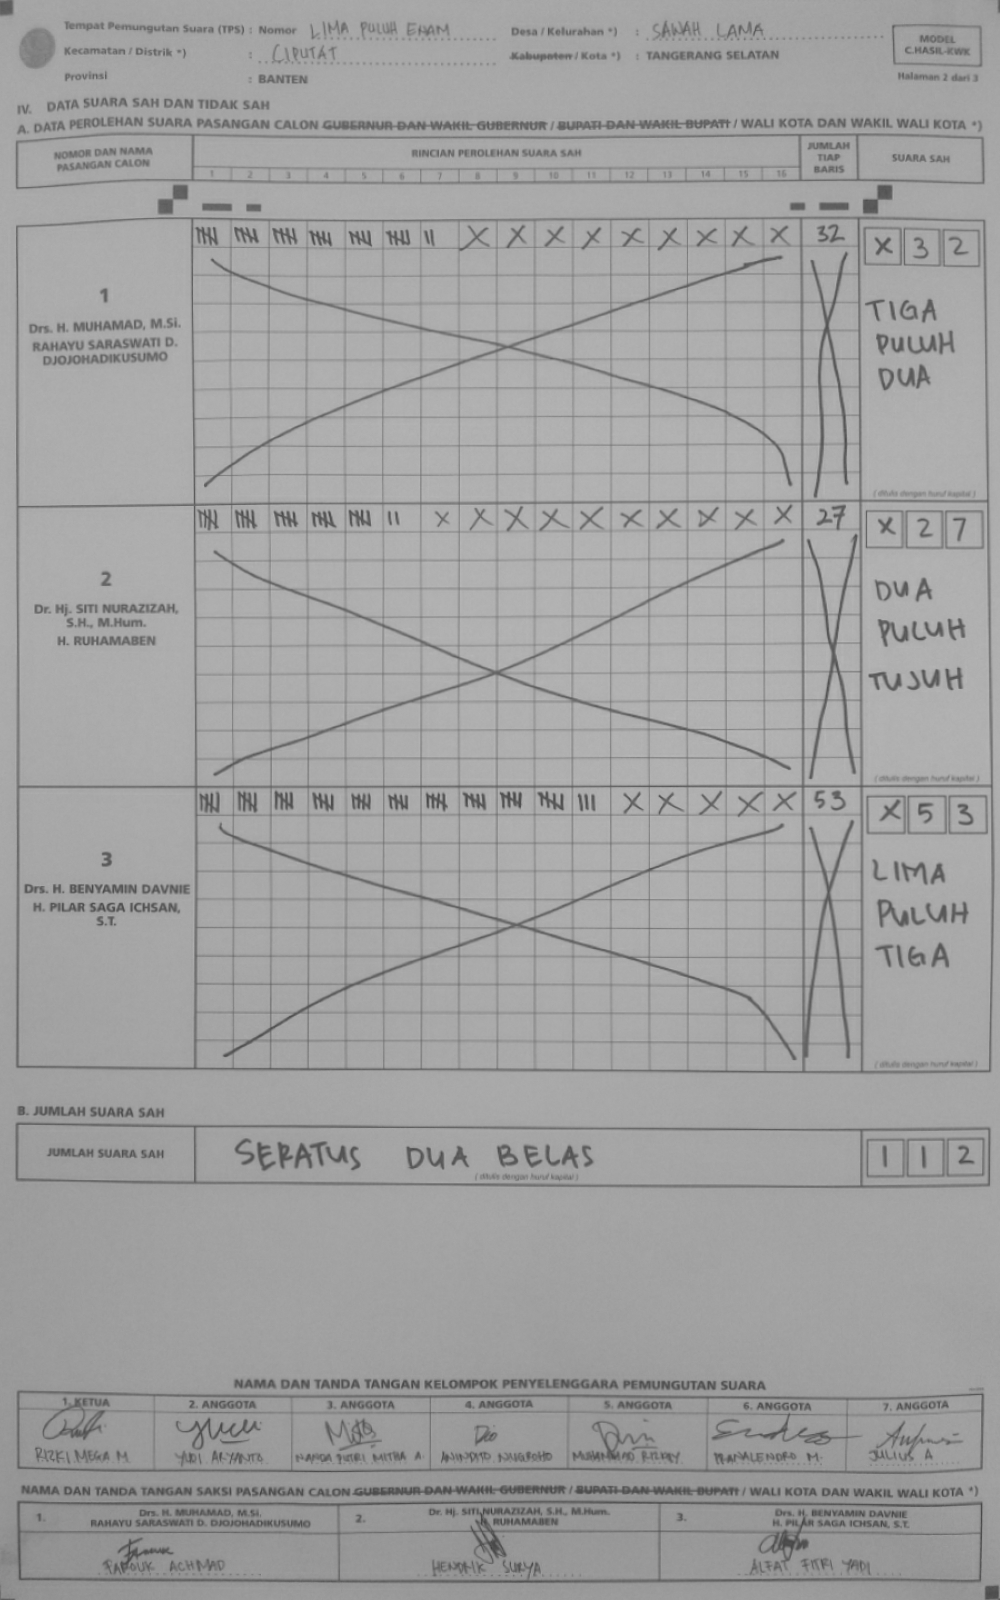 Tempat Pemungutan Suara (TPS) : Nomor LIMA PULUH ENAM Desa / Kelurahan *) : SAWAH LAMA
Kecamatan / Distrik *) : CIPUTAT Kabupaten / Kota *) : TANGERANG SELATAN
Provinsi : BANTEN
MODEL
C.HASIL-KWK
Halaman 2 dari 3
IV. DATA SUARA SAH DAN TIDAK SAH
A. DATA PEROLEHAN SUARA PASANGAN CALON GUBERNUR DAN WAKIL GUBERNUR / BUPATI DAN WAKIL BUPATI / WALI KOTA DAN WAKIL WALI KOTA *)
NOMOR DAN NAMA PASANGAN CALON
RINCIAN PEROLEHAN SUARA SAH
JUMLAH TIAP BARIS
SUARA SAH
1 2 3 4 5 6 7 8 9 10 11 12 13 14 15 16
1
Drs. H. MUHAMAD, M.Si.
RAHAYU SARASWATI D.
DJOJOHADIKUSUMO
X X X X X X X X X 32
X 3 2
TIGA
PULUH
DUA
( ditulis dengan huruf kapital )
2
Dr. Hj. SITI NURAZIZAH,
S.H., M.Hum.
H. RUHAMABEN
X X X X X X X X X X 27
X 2 7
DUA
PULUH
TUJUH
( ditulis dengan huruf kapital )
3
Drs. H. BENYAMIN DAVNIE
H. PILAR SAGA ICHSAN,
S.T.
X X X X X 53
X 5 3
LIMA
PULUH
TIGA
( ditulis dengan huruf kapital )
B. JUMLAH SUARA SAH
JUMLAH SUARA SAH SERATUS DUA BELAS 1 1 2
( ditulis dengan huruf kapital )
NAMA DAN TANDA TANGAN KELOMPOK PENYELENGGARA PEMUNGUTAN SUARA
1. KETUA 2. ANGGOTA 3. ANGGOTA 4. ANGGOTA 5. ANGGOTA 6. ANGGOTA 7. ANGGOTA
RIZKI MEGA M YUDI ARYANTO NANDA PUTRI MITHA A. ANINDITO NUGROHO MUHAMMAD PRANALENDRO M. JULIUS A
NAMA DAN TANDA TANGAN SAKSI PASANGAN CALON GUBERNUR DAN WAKIL GUBERNUR / BUPATI DAN WAKIL BUPATI / WALI KOTA DAN WAKIL WALI KOTA *)
1. Drs. H. MUHAMAD, M.Si.
RAHAYU SARASWATI D. DJOJOHADIKUSUMO
2. Dr. Hj. SITI NURAZIZAH, S.H., M.Hum.
H. RUHAMABEN
3. Drs. H. BENYAMIN DAVNIE
H. PILAR SAGA ICHSAN, S.T.
FAROUK ACHMAD HENDRIK SURYA ALFAT FITRI YADI